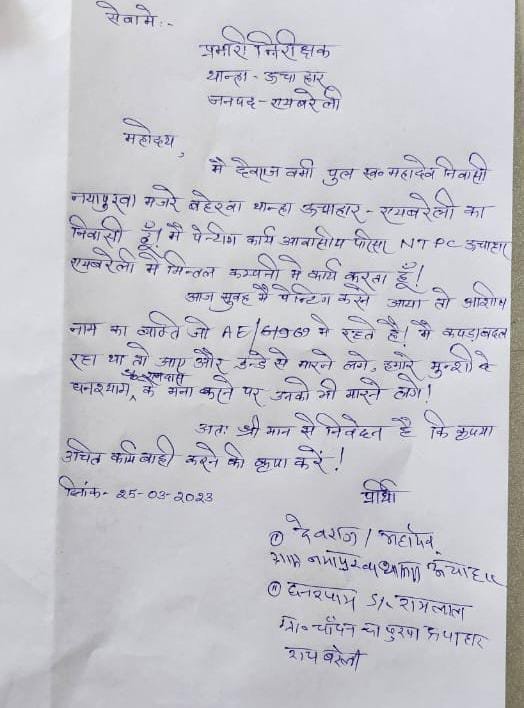 सेवामे:-
प्रभारी निरीक्षक
थान्हा - ऊचाहार
जनपद - रायबरेली
महोदय,
मै देवराज वर्मा पुत्र स्व० महादेव निवासी
नयापुरवा मजरे बहेरवा थान्हा ऊचाहार - रायबरेली का
निवासी हूँ! मै पेन्टिग कार्य आवासीय परिसर NTPC ऊचाहार
रायबरेली मे मित्तल कम्पनी मे कार्य करता हूँ!
आज सुवह मै पेन्टिग करने आया तो आशिष
नाम का व्यक्ति जो AE/ मे रहते है। मै कपड़ा बदल
रहा था तो आए और डन्डे से मारने लगे, हमारे मुन्शी के
घनश्याम के मना करने पर उनको भी मारने लगे!
अतः श्री मान से निवेदन है कि कृपया
उचित कार्यवाही करने की कृपा करें!
दिनांक - 25-03-2023 प्रार्थी
① देवराज / महादेव
ग्राम नयापुरवा थाना ऊचाहार
② घनश्याम S/. रामलाल
ग्रा० का पुरवा ऊचाहार
राय बरेली